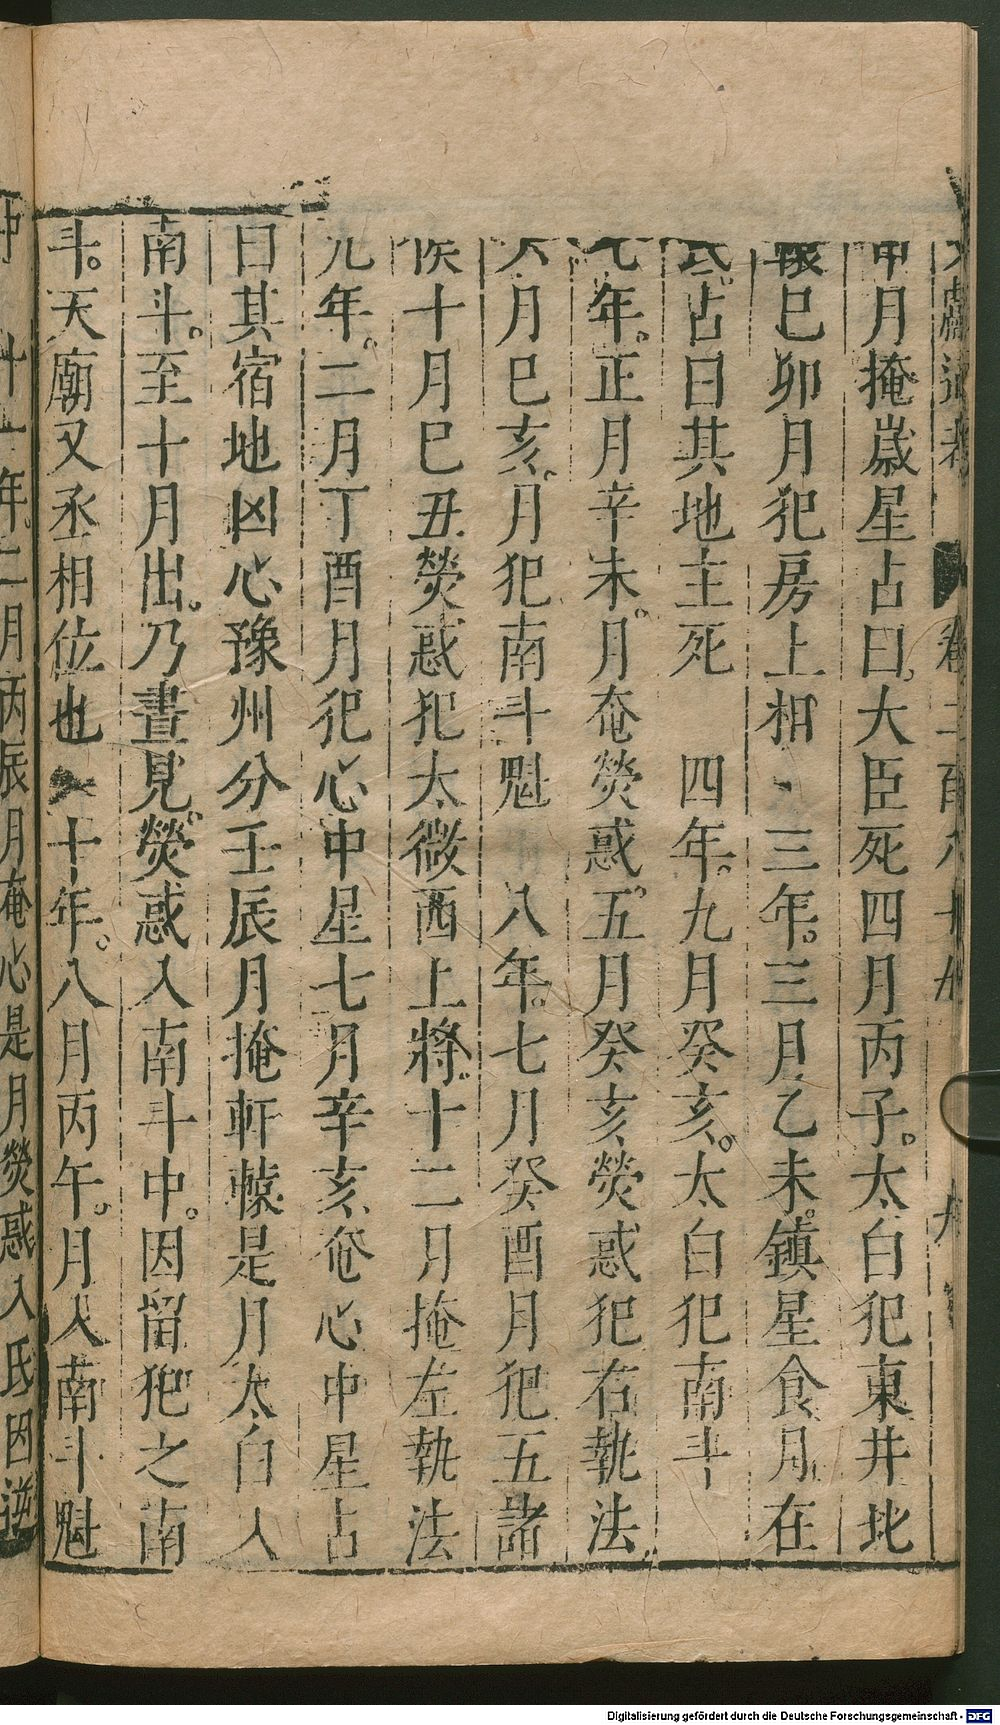 文獻通考　卷二百八十九　九
甲月掩嵗星占曰大臣死四月丙子。太白犯東井北
轅巳卯月犯房上相　三年。三月乙未。鎮星食月在
氐占曰其地主死　四年。九月癸亥。太白犯南斗
七年。正月辛未。月奄熒惑。五月癸亥熒惑犯右執法
六月巳亥。月犯南斗魁　八年。七月癸酉月犯五諸
侯十月巳丑熒惑犯太微西上將。十二月掩左執法
九年。二月丁酉月犯心中星七月辛亥奄心中星占
曰其宿地凶心豫州分壬辰月掩軒轅是月太白入
南斗。至十月出。乃晝見。熒惑入南斗中。因留犯之南
斗。天廟又丞相位也　十年。八月丙午。月入南斗魁
中　十一年。二月丙辰月奄心是月熒惑入氐因逆
Digitalisierung gefördert durch die Deutsche Forschungsgemeinschaft - DFG